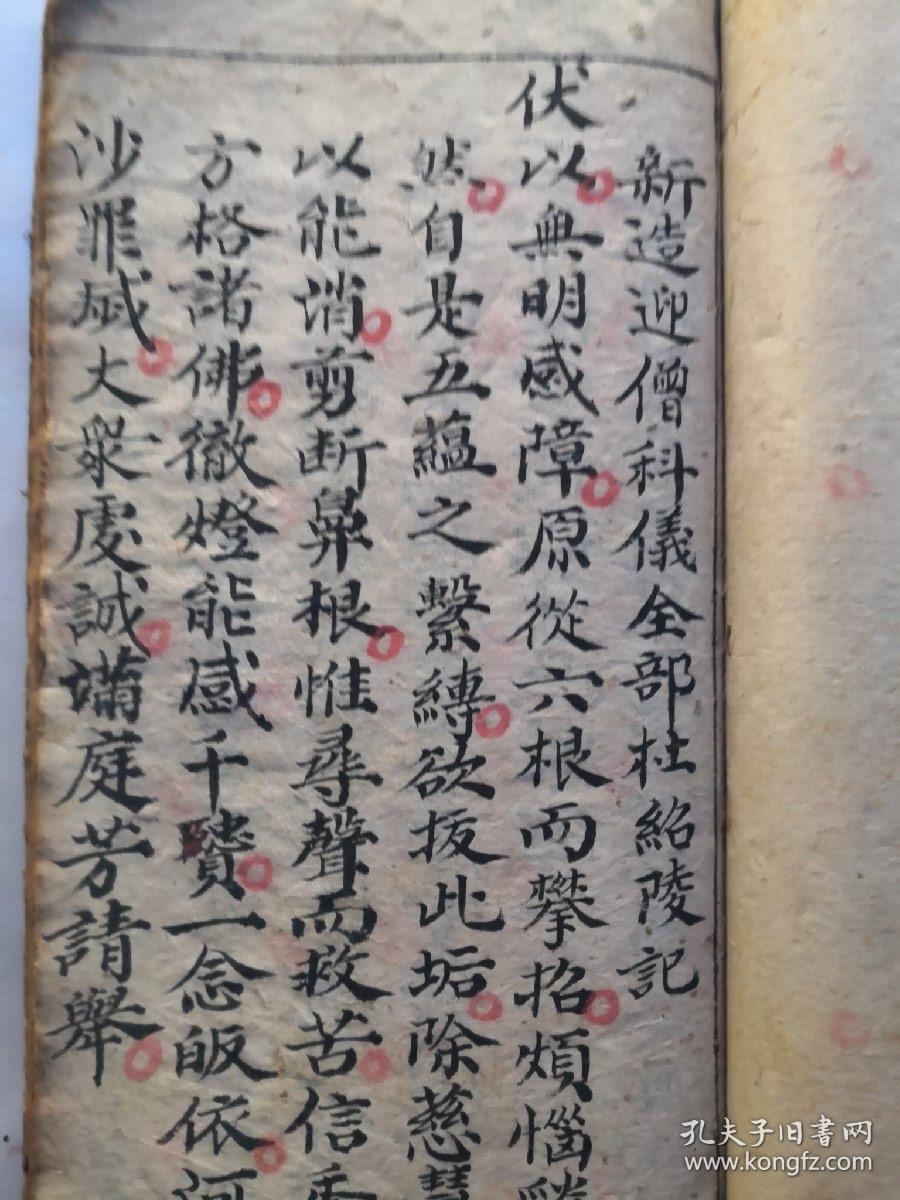 新造迎僧科儀全部杜紹陵記
伏以無明感障原從六根而攀招煩惱
然自是五蘊之繫縳欲拔此垢除慈慧
以能消剪断鼻根惟尋聲而救苦信香
方格諸佛徹燈能感千賢一念皈依河
沙罪烕大衆虔誠滿庭芳請舉
孔夫子旧書网
www.kongfz.com